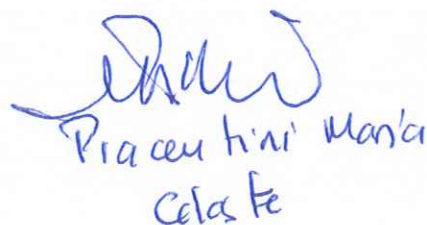 Piacentini Maria
Celeste